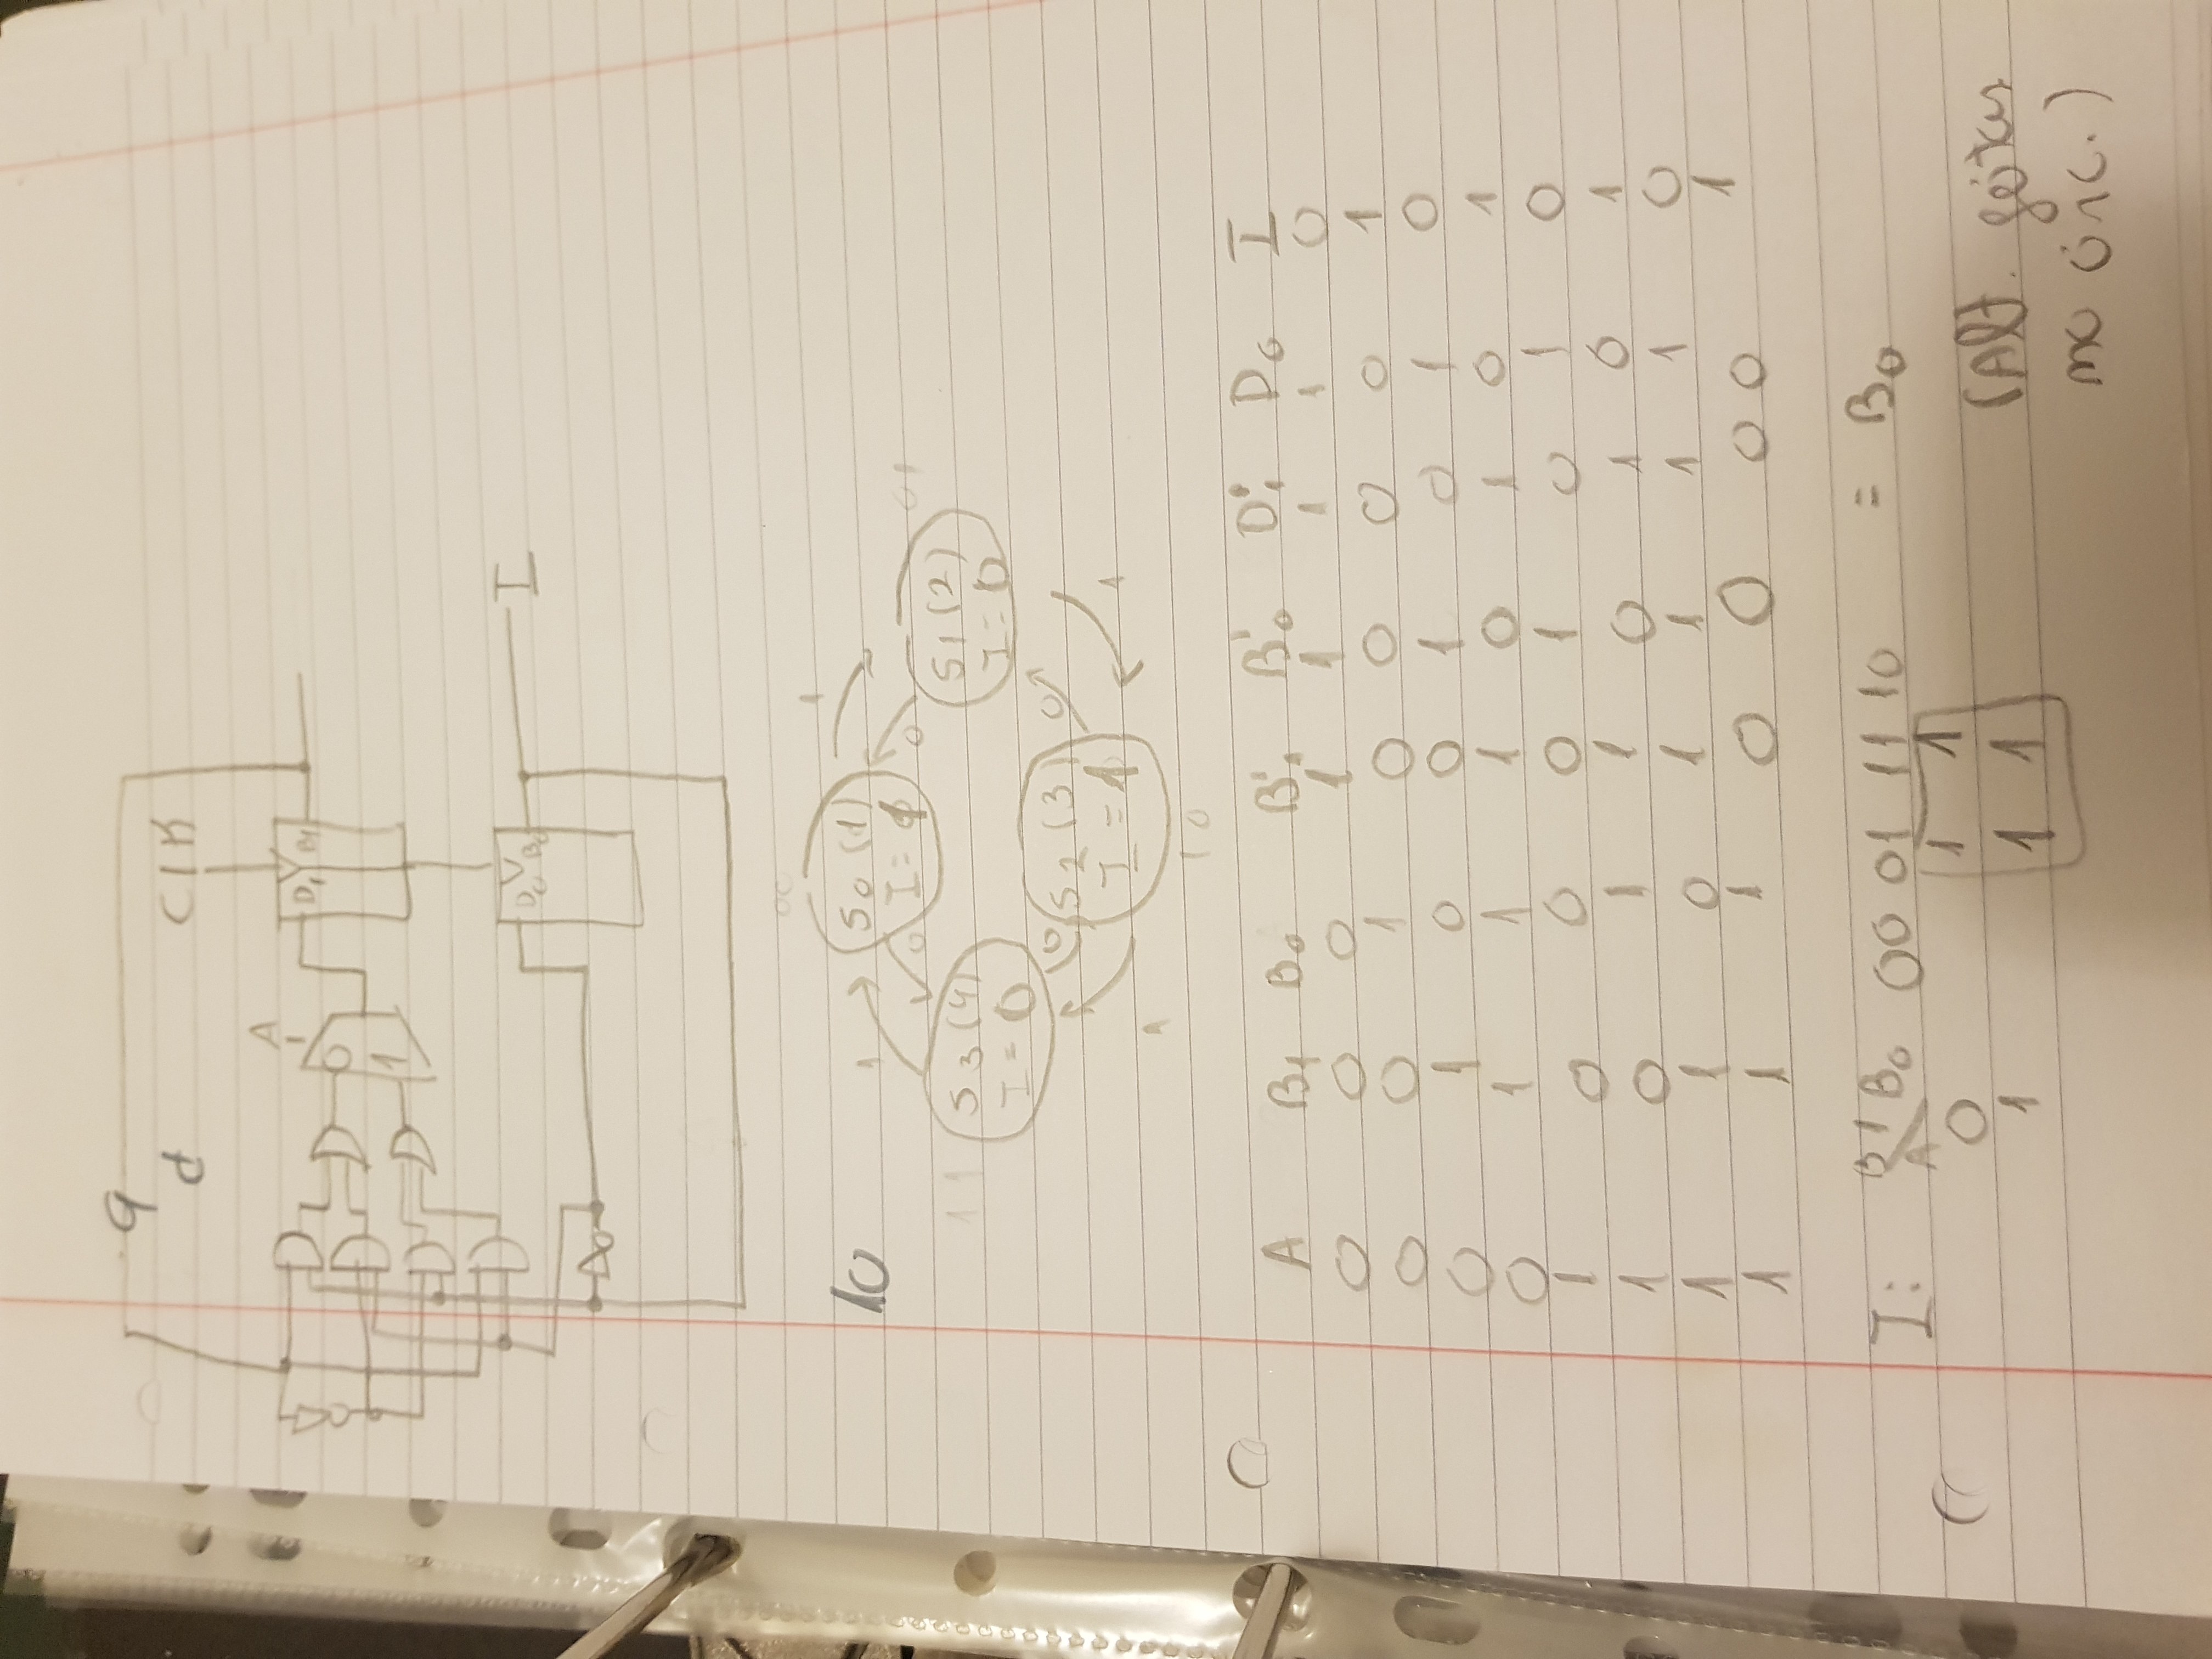 9
d
CLK
A
D1 B1
0
1
D0 B0
I
00
10
1
S0 (1)
I = 1
1
0
0
01
11
S3 (4)
I = 0
S1 (2)
I = 0
0
S2 (3)
I = 1
0
1
1
10
A B1 B0 B'1 B'0 D'1 D0 I
0 0 0 1 1 1 1 0
0 0 1 0 0 0 0 1
0 1 0 0 1 0 1 0
0 1 1 1 0 1 0 1
1 0 0 0 1 0 1 0
1 0 1 1 0 1 0 1
1 1 0 1 1 1 1 0
1 1 1 0 0 0 0 1
I: B1B0 00 01 11 10 = B0
A
0 1 1
1 1 1
(Alt.